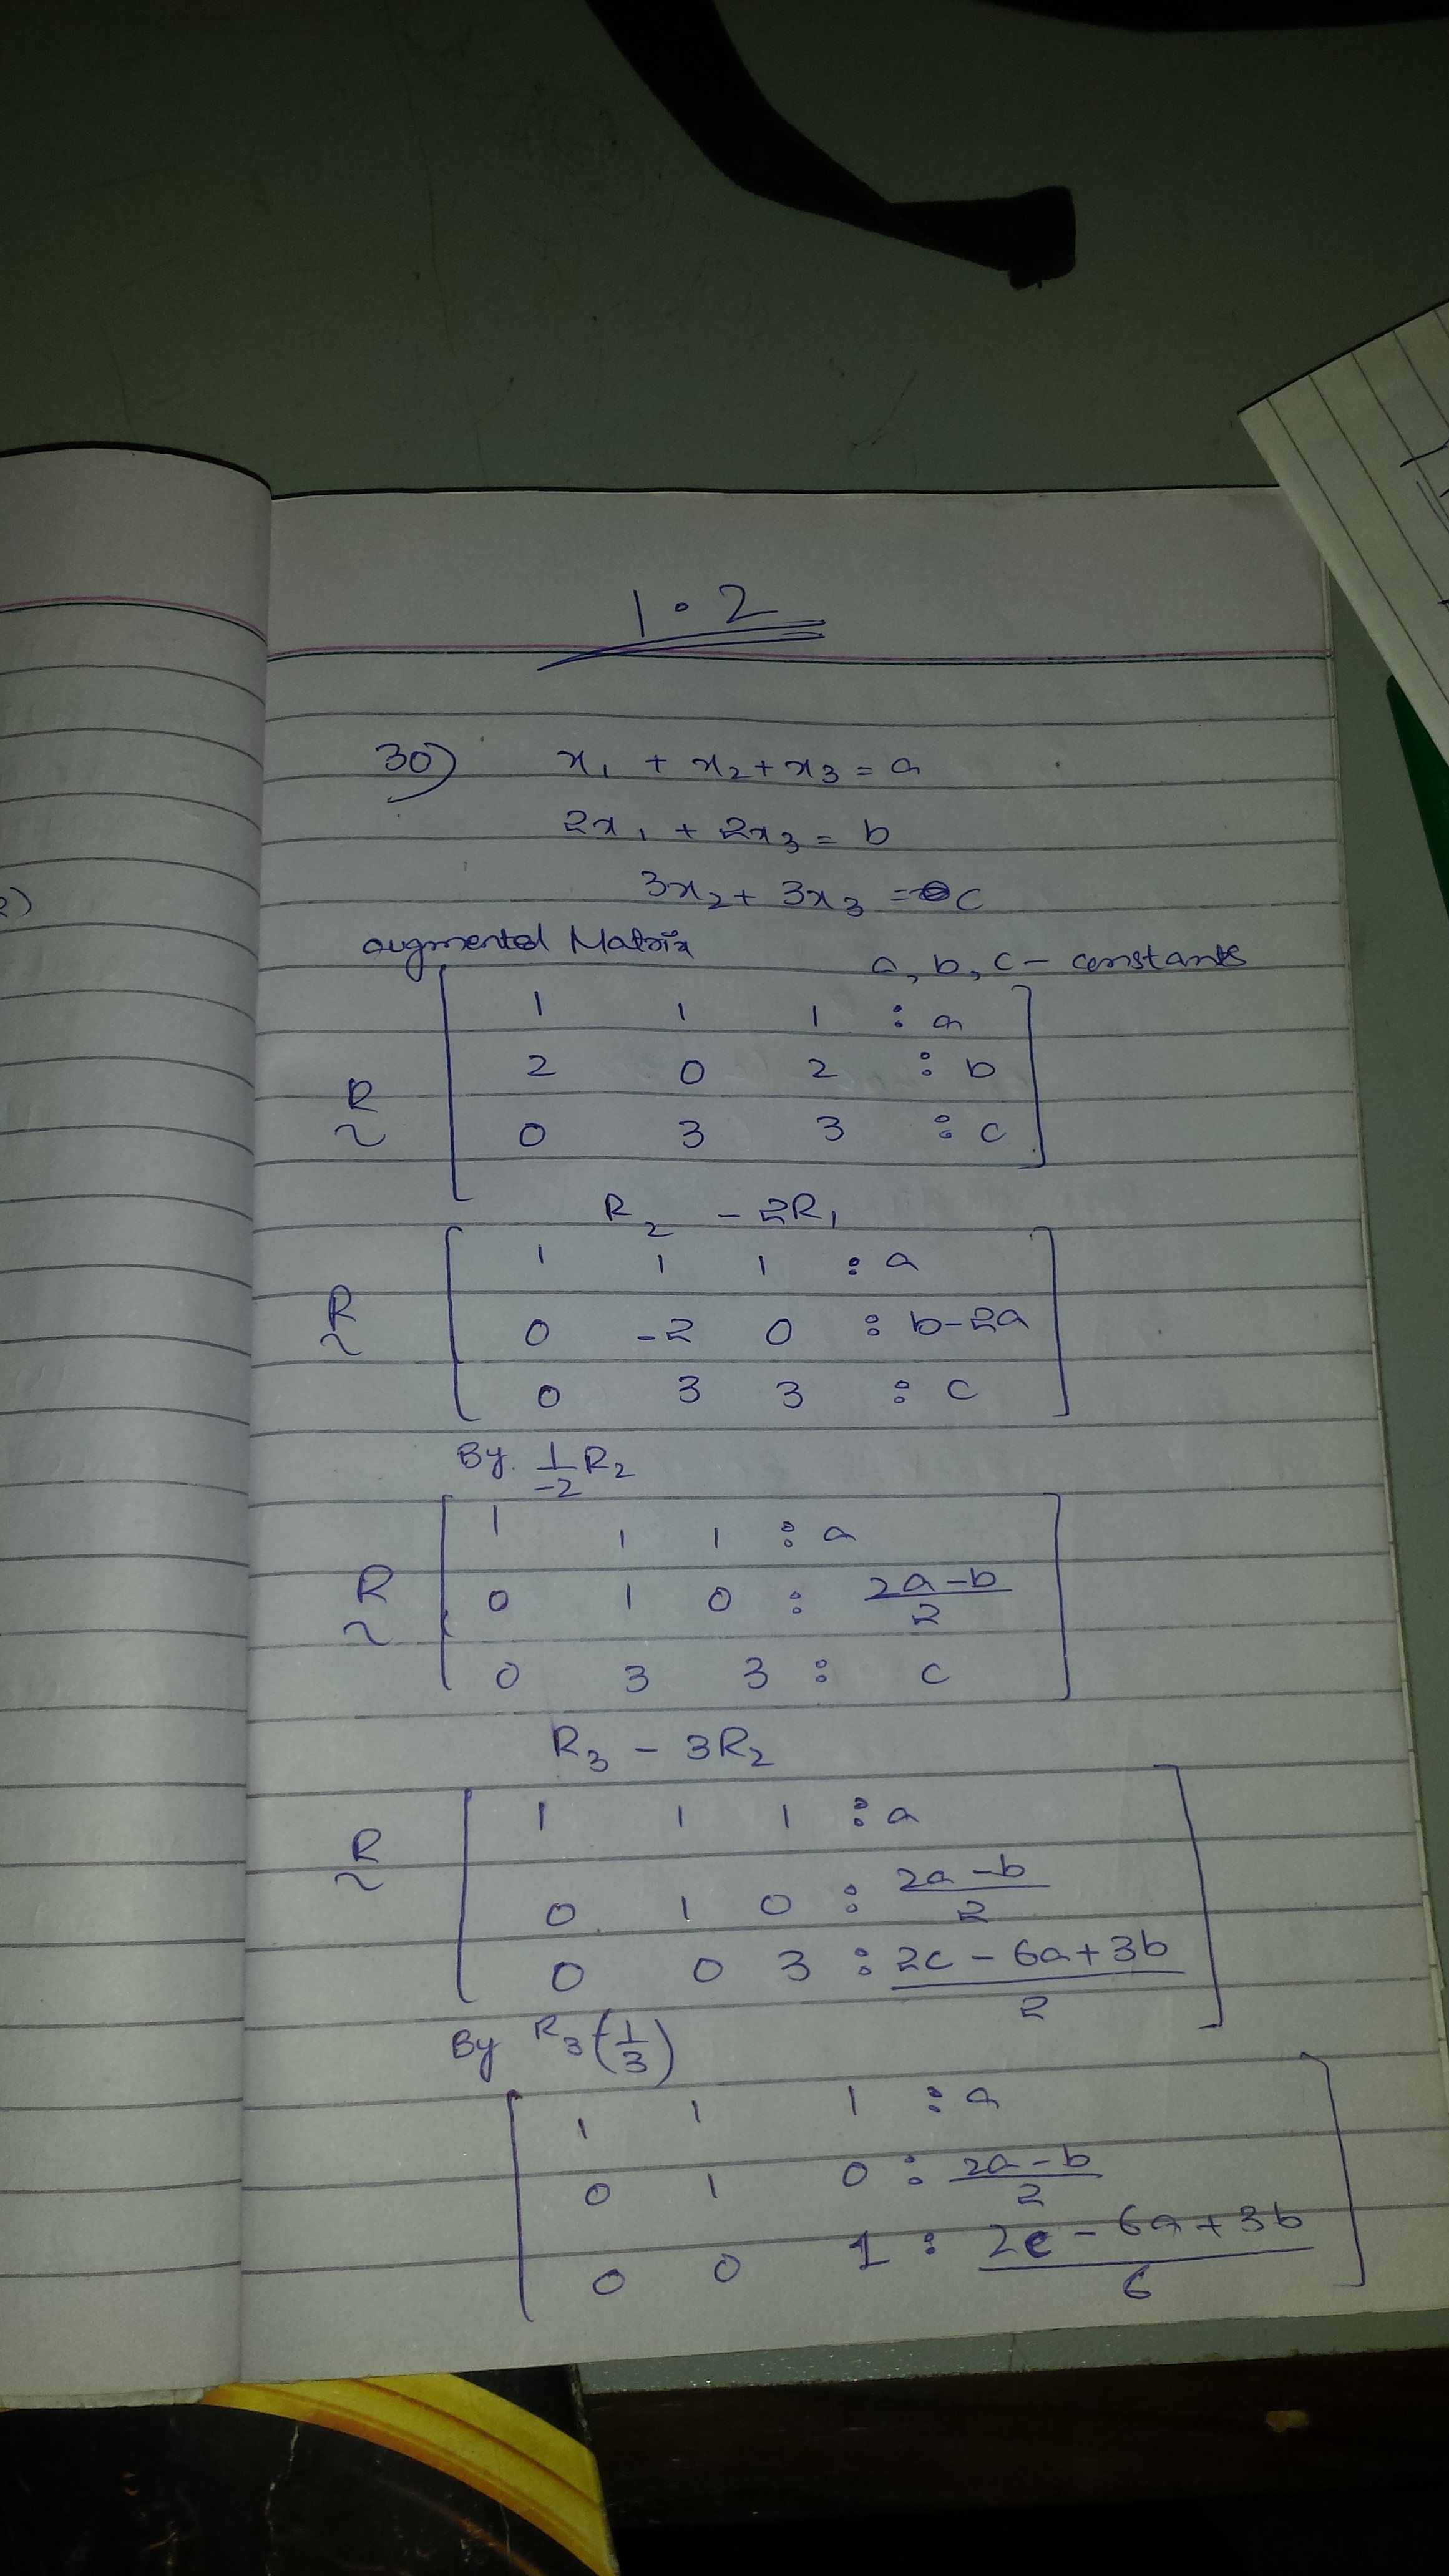 1.2
30) x₁ + x₂ + x₃ = a
2x₁ + 2x₃ = b
3x₂ + 3x₃ = c
augmented Matrix
a, b, c - constants
1 1 1 : a
R 2 0 2 : b
~ 0 3 3 : c
R₂ - 2R₁
1 1 1 : a
R
~ 0 -2 0 : b-2a
0 3 3 : c
By. 1/-2 R₂
1 1 1 : a
R
~ 0 1 0 : 2a-b/2
0 3 3 : c
R₃ - 3R₂
1 1 1 : a
R
~
0 1 0 : 2a-b/2
0 0 3 : 2c-6a+3b/2
By R₃(1/3)
1 1 1 : a
0 1 0 : 2a-b/2
0 0 1 : 2c-6a+3b/6
2)